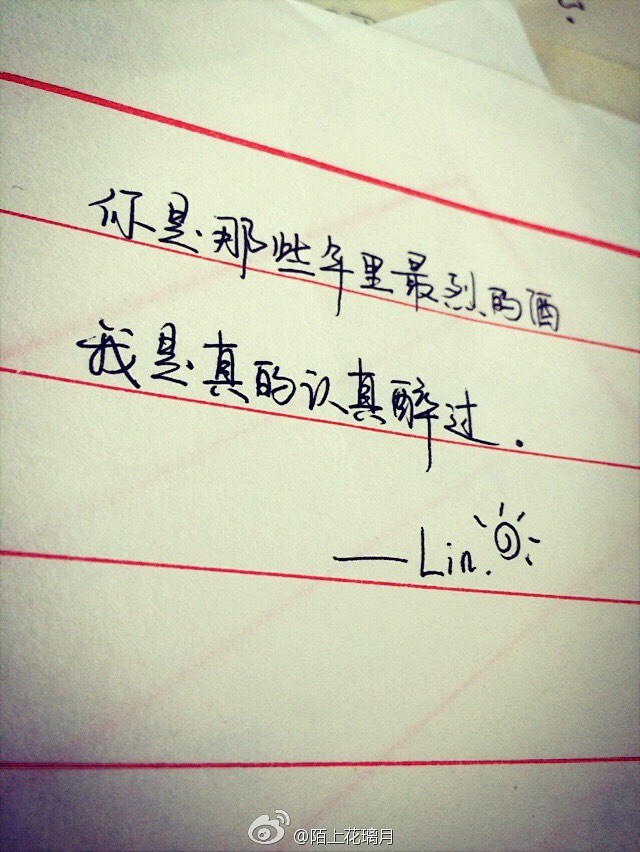 你是那些年里最烈的酒
我是真的认真醉过.
——Lin.
@陌上花璃月